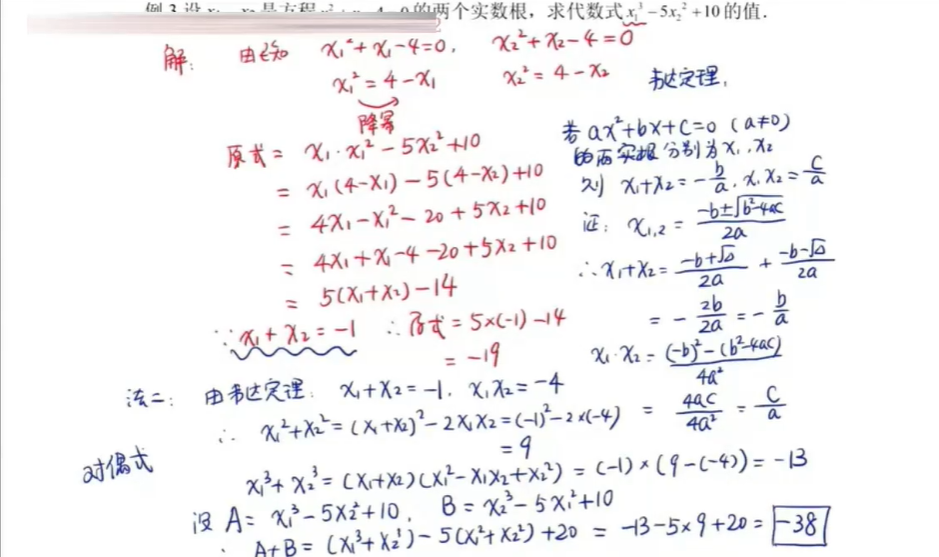 例 3 设 x₁, x₂ 是方程 x² + x - 4 = 0 的两个实数根，求代数式 x₁³ - 5x₂² + 10 的值.
解： 由已知 x₁² + x₁ - 4 = 0, x₂² + x₂ - 4 = 0
x₁² = 4 - x₁ x₂² = 4 - x₂
降幂
原式 = x₁·x₁² - 5x₂² + 10
= x₁(4 - x₁) - 5(4 - x₂) + 10
= 4x₁ - x₁² - 20 + 5x₂ + 10
= 4x₁ + x₁ - 4 - 20 + 5x₂ + 10
= 5(x₁ + x₂) - 14
∵ x₁ + x₂ = -1 ∴ 原式 = 5×(-1) - 14
= -19
韦达定理，
若 ax² + bx + c = 0 (a≠0)
的两实根分别为 x₁, x₂
则 x₁ + x₂ = -b/a, x₁x₂ = c/a
证： x₁,₂ = (-b±√(b²-4ac))/2a
∴ x₁ + x₂ = (-b+√Δ)/2a + (-b-√Δ)/2a
= -2b/2a = -b/a
x₁·x₂ = ((-b)² - (b²-4ac))/4a²
= 4ac/4a² = c/a
法二： 由韦达定理： x₁ + x₂ = -1, x₁x₂ = -4
∴ x₁² + x₂² = (x₁ + x₂)² - 2x₁x₂ = (-1)² - 2×(-4)
= 9
对偶式
x₁³ + x₂³ = (x₁ + x₂)(x₁² - x₁x₂ + x₂²) = (-1)×(9 - (-4)) = -13
设 A = x₁³ - 5x₂² + 10, B = x₂³ - 5x₁² + 10
∴ A + B = (x₁³ + x₂³) - 5(x₁² + x₂²) + 20 = -13 - 5×9 + 20 = -38